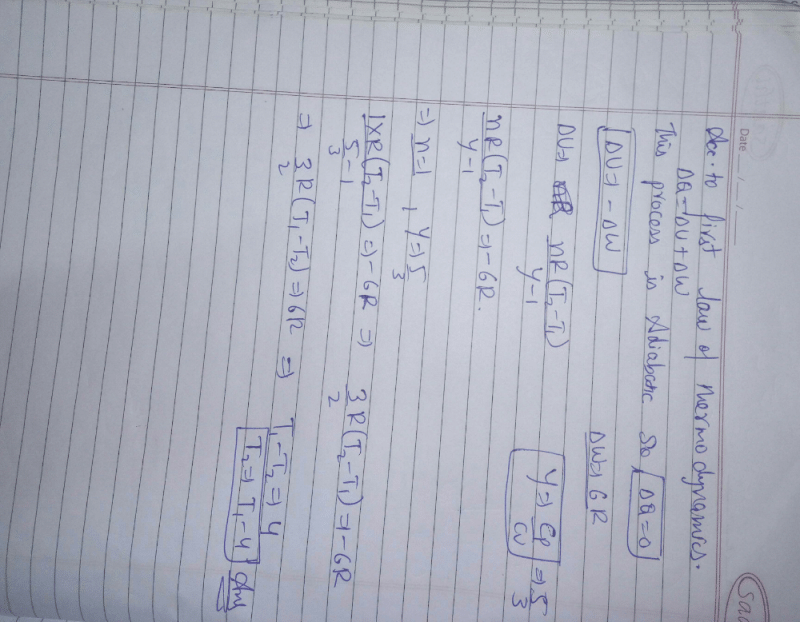 Date __/__/__
Saa
Acc. to first law of thermodynamics.
ΔQ = ΔU + ΔW
This process is Adiabatic So ΔQ=0
ΔU ⇒ - ΔW
ΔW ⇒ 6R
ΔU ⇒ nR(T₂-T₁)/γ-1
γ ⇒ Cp/Cv ⇒ 5/3
nR(T₂-T₁)/γ-1 ⇒ -6R.
⇒ n=1 , γ ⇒ 5/3
1×R(T₂-T₁)/5/3 -1 ⇒ -6R ⇒ 3/2 R(T₂-T₁) ⇒ -6R
⇒ 3/2 R(T₁-T₂) ⇒ 6R ⇒ T₁-T₂ ⇒ 4
T₂ ⇒ T₁-4 Ans